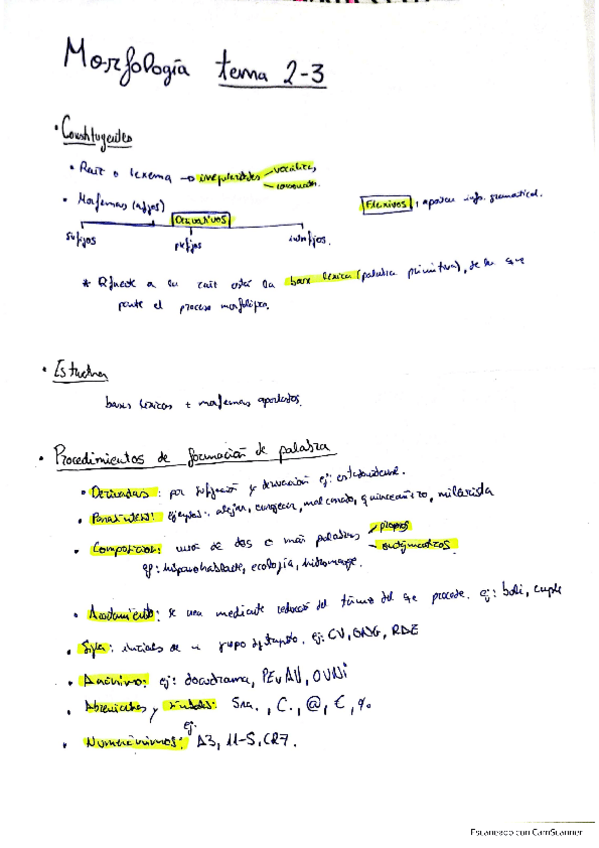 Morfología tema 2-3
• Constituyentes
• Raíz o lexema → irregularidades vocálicas
consonán.
• Morfemas (afijos) Flexivos: aportan info. gramatical.
Derivativos
sufijos prefijos interfijos.
* Frente a la raíz está la base léxica (palabra primitiva), de la que
parte el proceso morfológico.
• Estructura
bases léxicas + morfemas aportados.
• Procedimientos de formación de palabra
• Derivadas: por sufijación y derivación ej: estadounidense.
• Parasíntesis: ejemplos: alejar, enrojecer, malcriado, quinceañero, milerista
• Composición: unión de dos o más palabras propios
sintagmáticos
ej: hispanohablante, ecología, hidromasaje.
• Acortamiento: se crea mediante reducción del término del que procede. ej: boli, cumple
• Sigla: iniciales de un grupo ej: CV, ONG, RAE
• Acrónimo: ej: docudrama, PEvAU, OVNI
• Abreviaturas y símbolos: Sra., C., @, €, %
ej:
• Numerónimos: A3, 11-S, CR7.
Escaneado con CamScanner